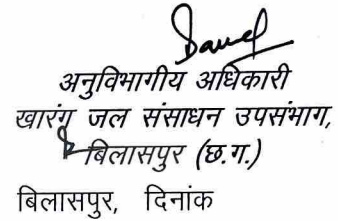 अनुविभागीय अधिकारी
खारंग जल संसाधन उपसंभाग,
बिलासपुर (छ.ग.)
बिलासपुर, दिनांक